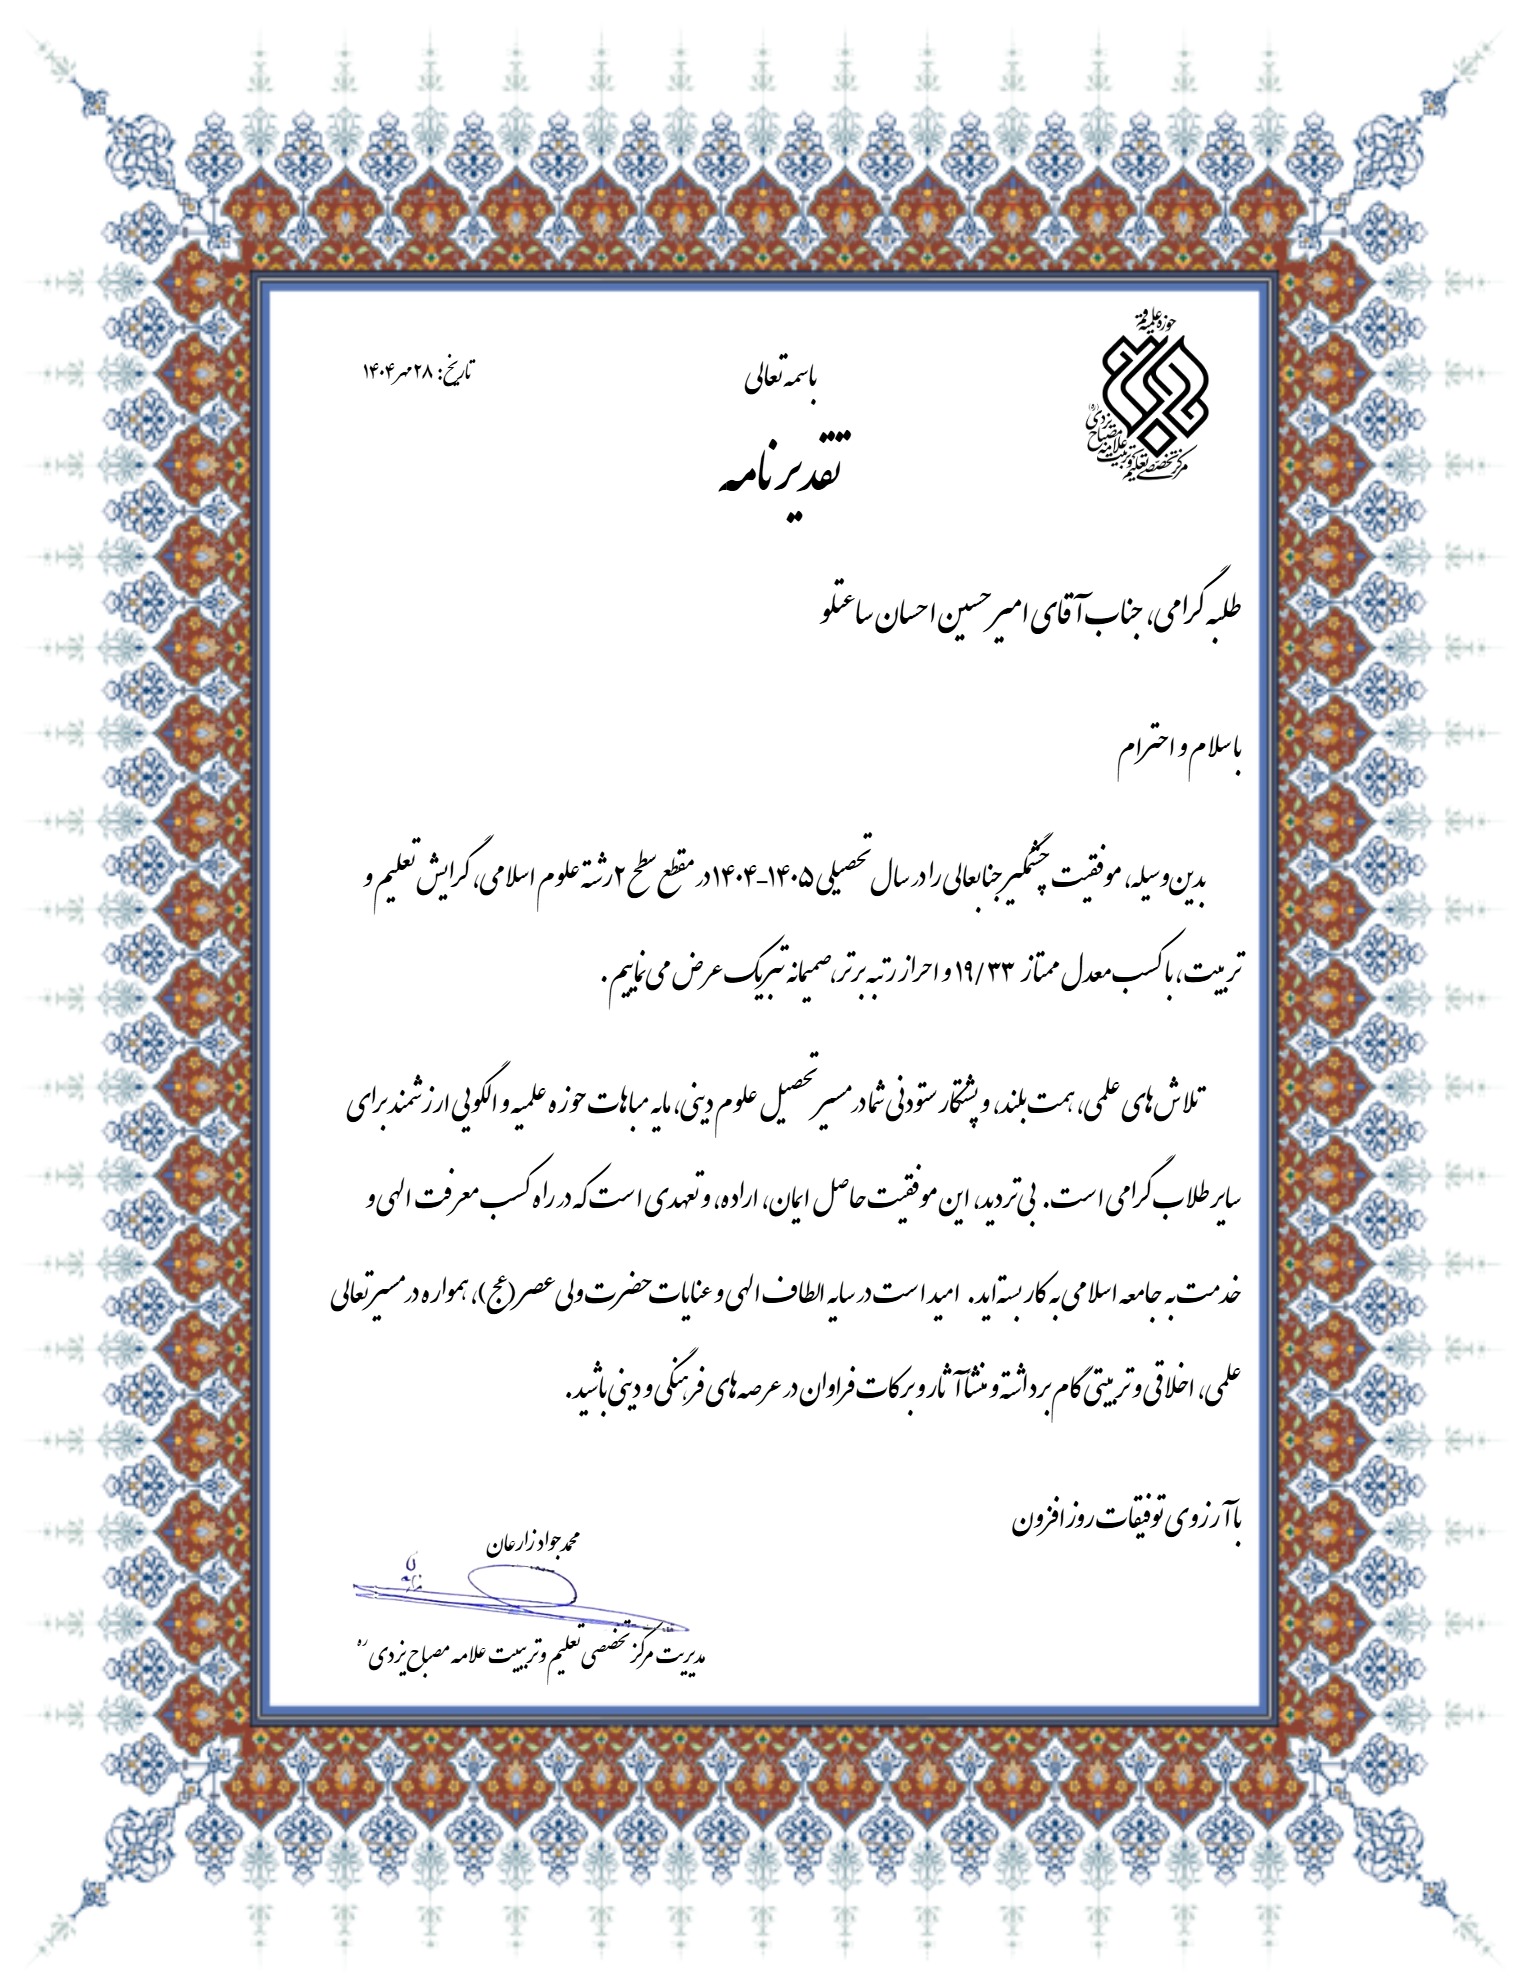 حوزه علمیه قم
مرکز تخصصی تعلیم و تربیت علامه مصباح یزدی (ره)
باسمه تعالی
تاریخ: ۲۸ مهر ۱۴۰۴
تقدیرنامه
طلبه گرامی، جناب آقای امیرحسین احسان ساعتلو
با سلام و احترام
بدین وسیله، موفقیت چشمگیر جنابعالی را در سال تحصیلی ۱۴۰۵-۱۴۰۴ در مقطع سطح ۲ رشته علوم اسلامی، گرایش تعلیم و
تربیت، با کسب معدل ممتاز ۱۹/۳۳ و احراز رتبه برتر، صمیمانه تبریک عرض می نماییم.
تلاش های علمی، همت بلند، و پشتکار ستودنی شما در مسیر تحصیل علوم دینی، مایه مباهات حوزه علمیه و الگویی ارزشمند برای
سایر طلاب گرامی است. بی تردید، این موفقیت حاصل ایمان، اراده، و تعهدی است که در راه کسب معرفت الهی و
خدمت به جامعه اسلامی به کار بسته اید. امید است در سایه الطاف الهی و عنایات حضرت ولی عصر (عج)، همواره در مسیر تعالی
علمی، اخلاقی و تربیتی گام برداشته و منشأ آثار و برکات فراوان در عرصه های فرهنگی و دینی باشید.
با آرزوی توفیقات روزافزون
محمدجواد زارعان
مدیریت مرکز تخصصی تعلیم و تربیت علامه مصباح یزدی ره